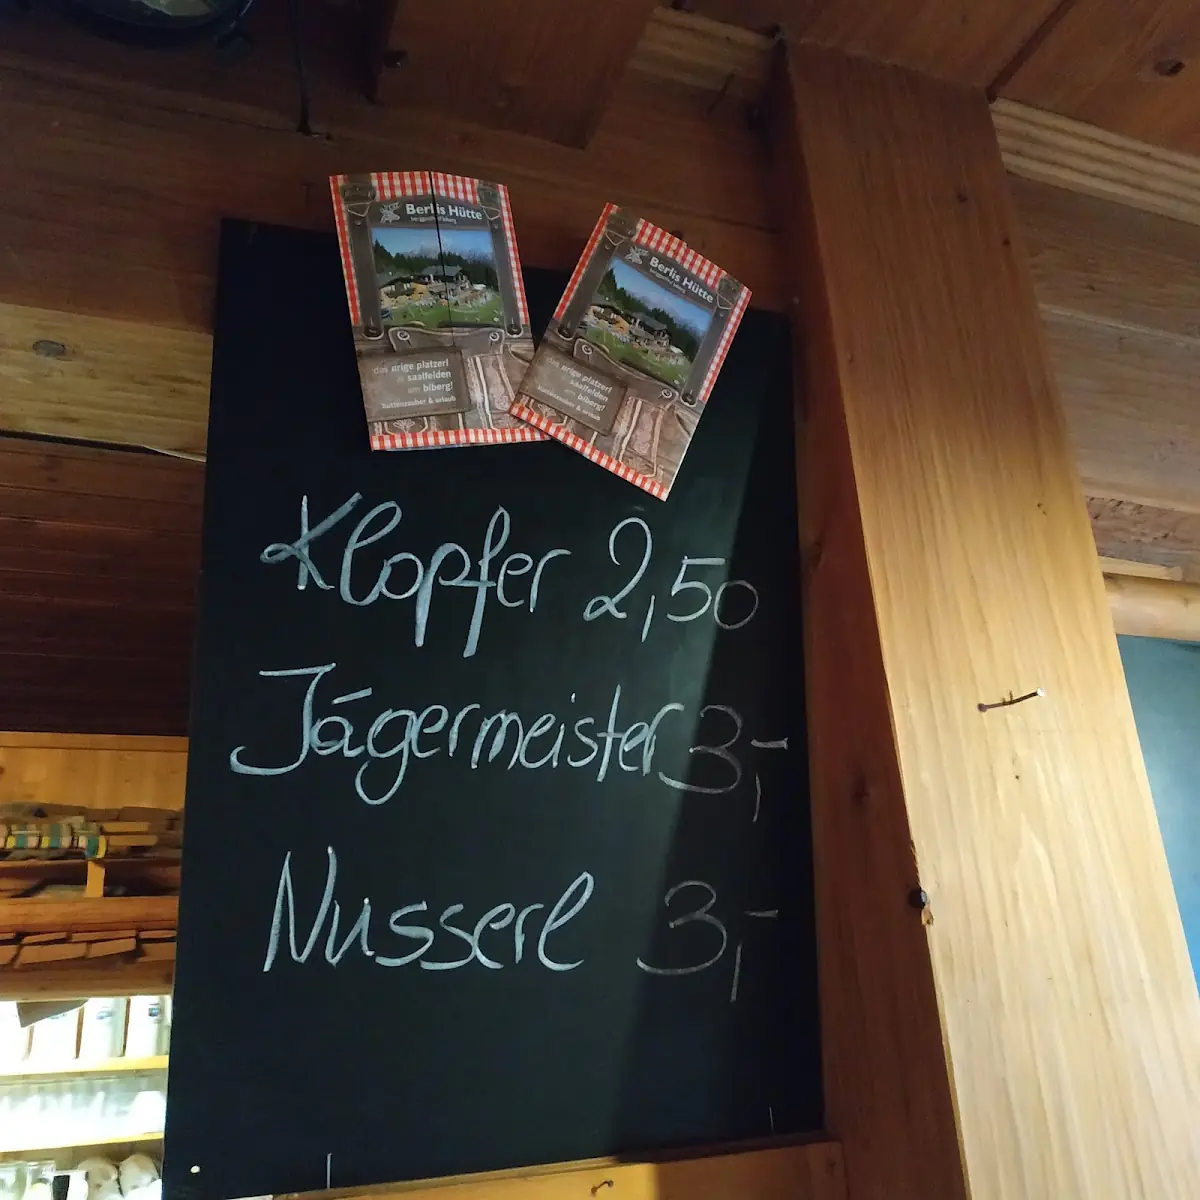 Berlis Hütte
das urige platzerl
in saalfelden
am biberg!
hüttenzauber & urlaub
Berlis Hütte
das urige platzerl
in saalfelden
am biberg!
hüttenzauber & urlaub
Klopfer 2,50
Jágermeister 3,-
Nusserl 3,-